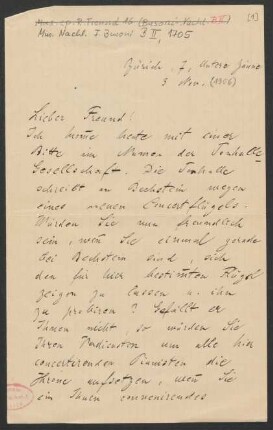 Mus. Nachl. F. Busoni B II, 1705
[1]
Zürich 7, Untere Zäune
3 Nov. (1906)
Lieber Freund!
Ich komme heute mit einer
Bitte im Namen der Tonhalle
Gesellschaft. Die Tonhalle
schreibt an Bechstein wegen
eines neuen Concertflügels.
Würden Sie nun freundlich
sein, wenn Sie einmal gerade
bei Bechstein sind, sich
den für hier bestimmten Flügel
zeigen zu lassen u. ihn
zu probiren? Gefällt er
Ihnen nicht, so würden Sie
Ihren Verdiensten um alle hier
concertirenden Pianisten die
Krone aufsetzen, wenn Sie
ein Ihnen convenirendes